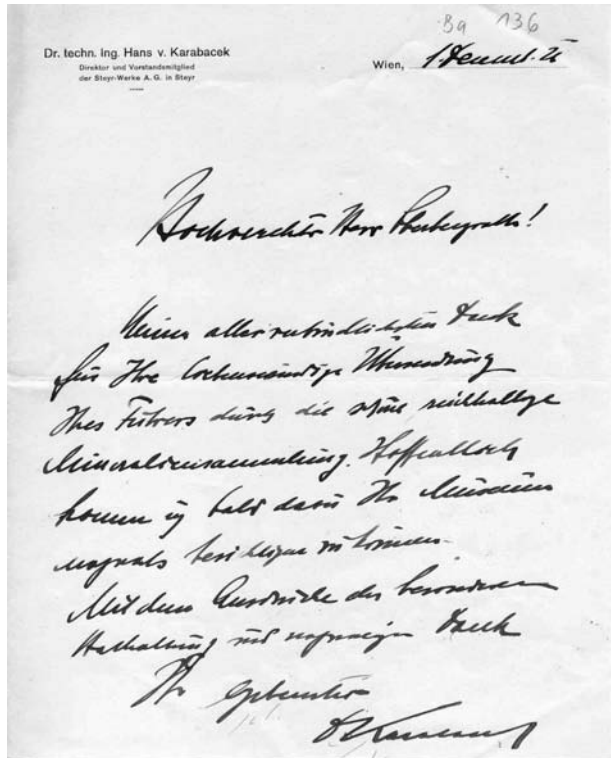 Ba 136
Dr. techn. Ing. Hans v. Karabacek
Direktor und Vorstandsmitglied
der Steyr-Werke A. G. in Steyr
Wien, 1.
Hochverehrter Herr Oberbergrath!
Meinen allerverbindlichsten Dank
für Ihre liebenswürdige Übersendung
Ihres Führers durch die schöne reichhaltige
Mineraliensammlung. Hoffentlich
komme ich bald dazu Ihr Museum
nochmals besichtigen zu können.
Mit dem Ausdrucke der besonderen
Hochachtung und nochmaligen Dank
Ihr ergebenster
Karabacek